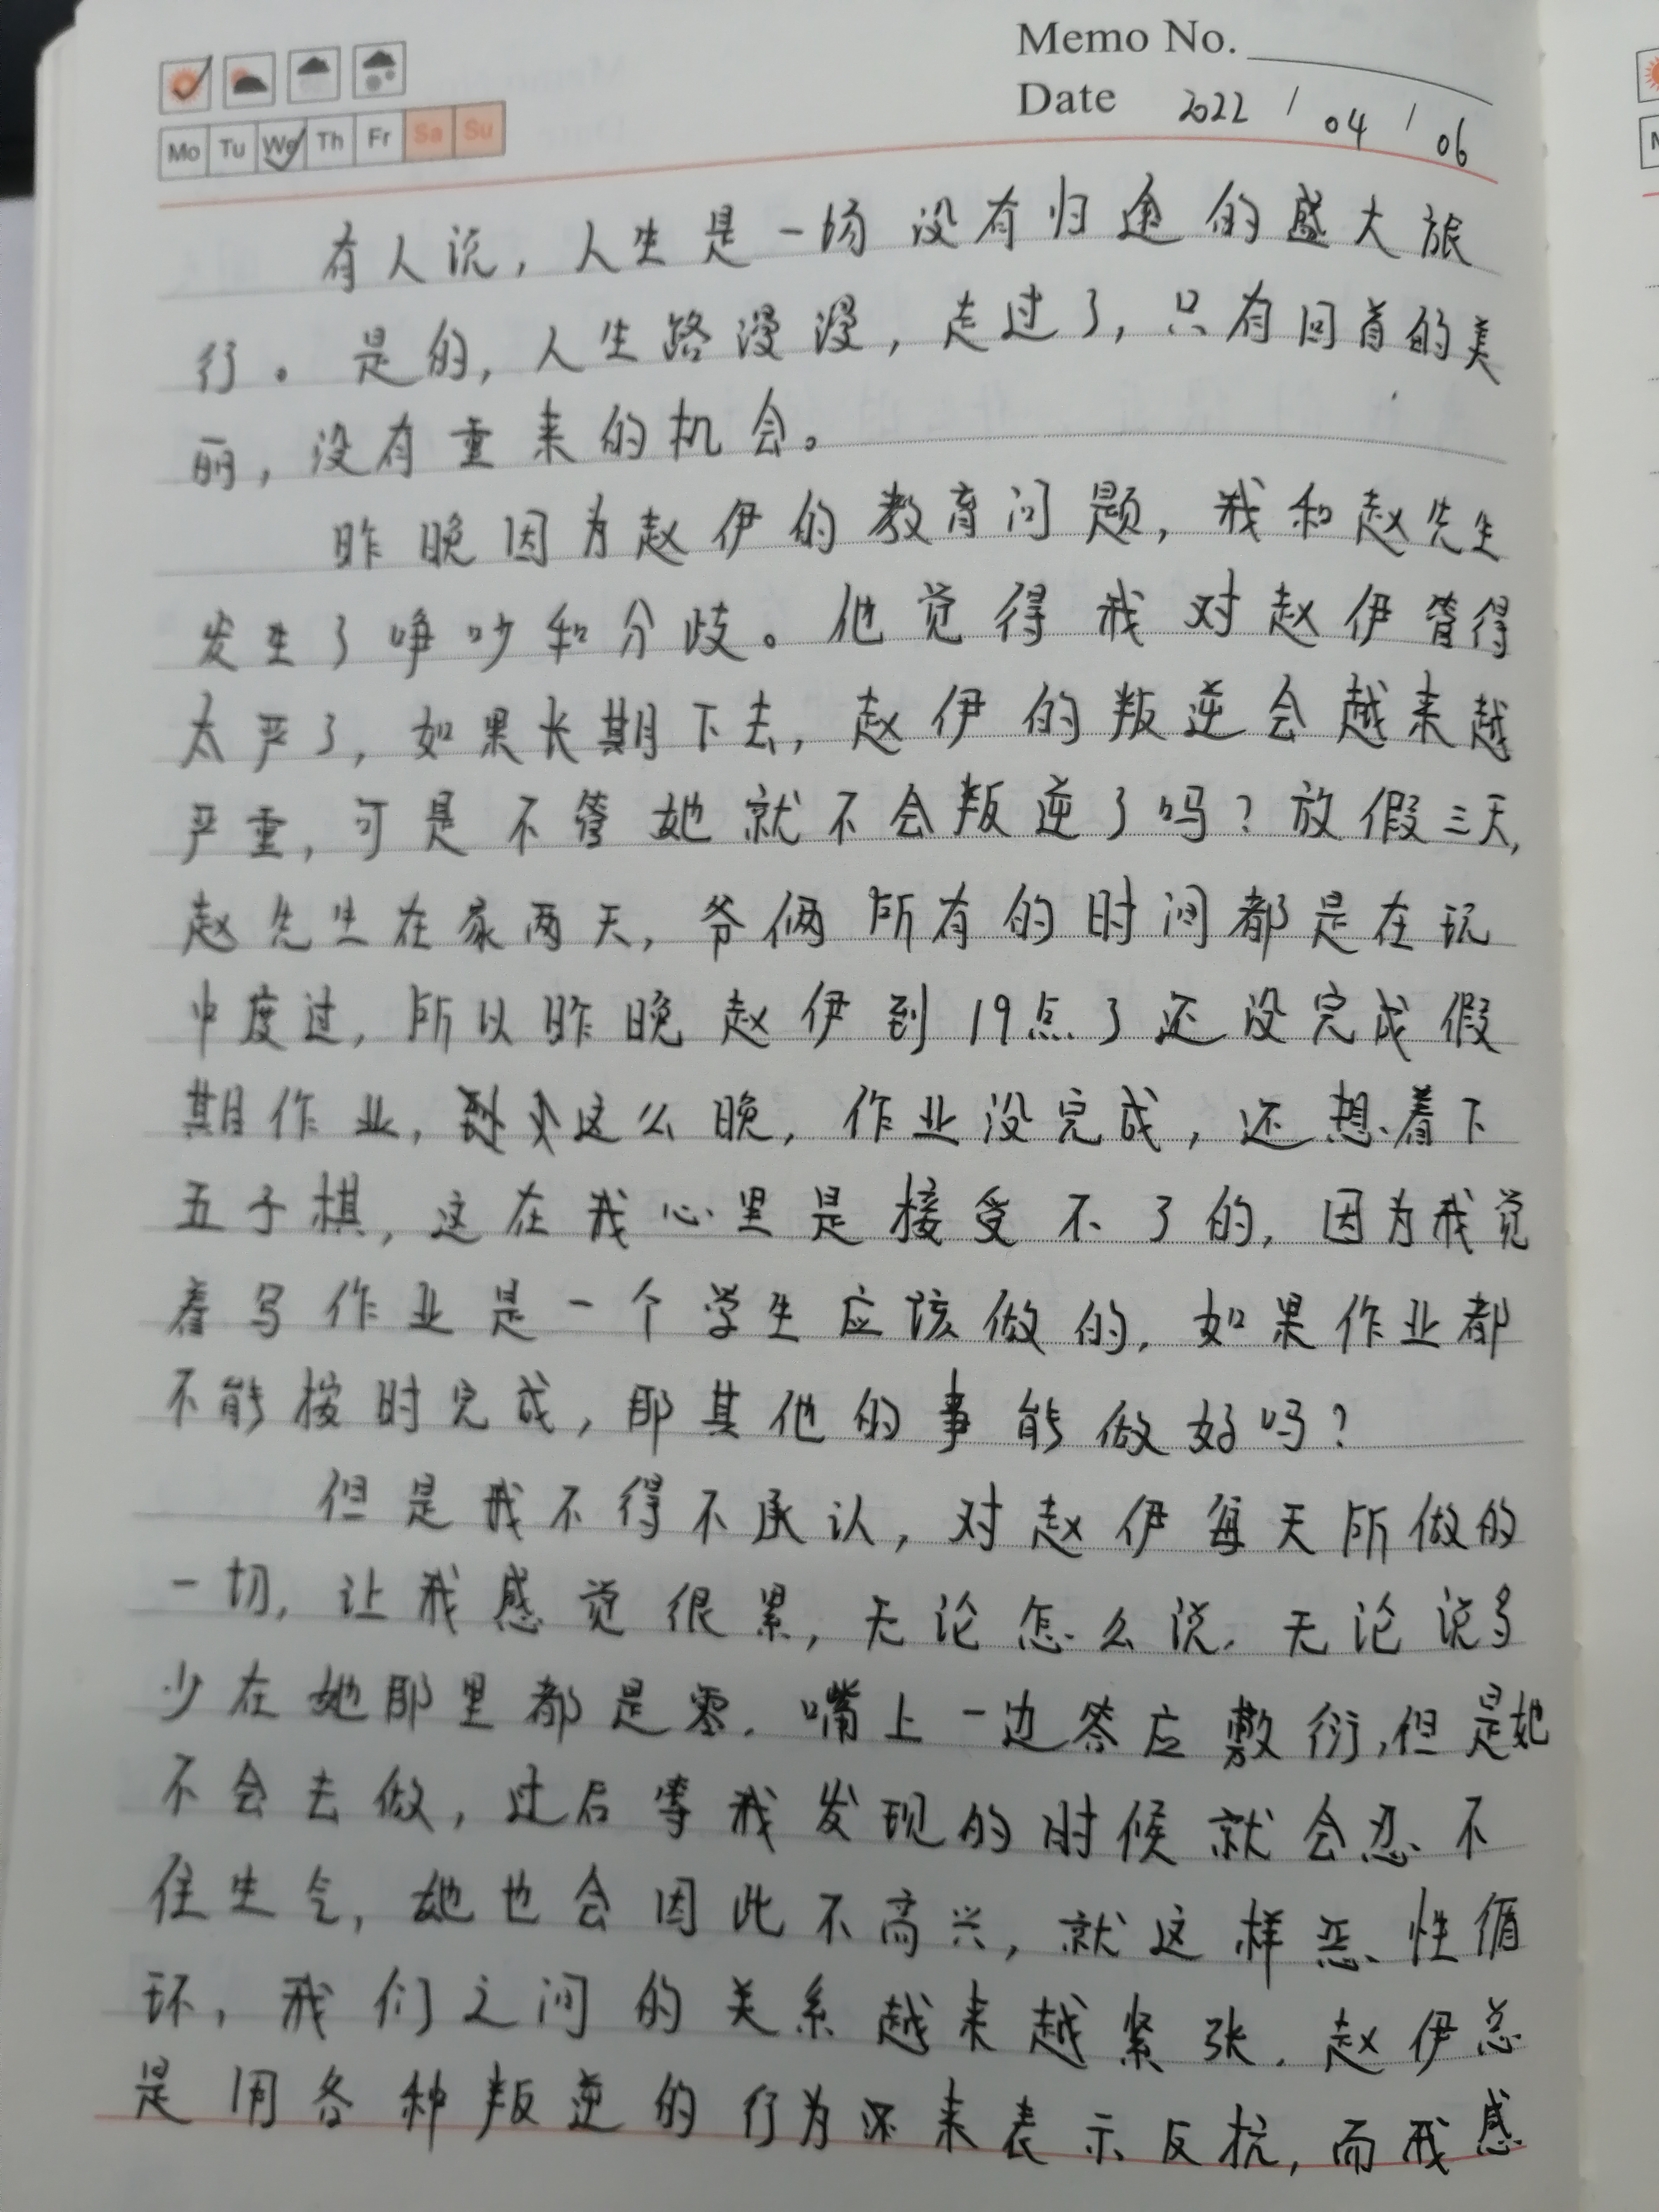 Memo No.
Date 2022 / 04 / 06
Mo Tu We Th Fr Sa Su
有人说，人生是一场没有归途的盛大旅
行。是的，人生路漫漫，走过了，只有回首的美
丽，没有重来的机会。
昨晚因为赵伊的教育问题，我和赵先生
发生了争吵和分歧。他觉得我对赵伊管得
太严了，如果长期下去，赵伊的叛逆会越来越
严重，可是不管她就不会叛逆了吗？放假三天，
赵先生在家两天，爷俩所有的时间都是在玩
中度过，所以昨晚赵伊到19点了还没完成假
期作业，这么晚，作业没完成，还想着下
五子棋，这在我心里是接受不了的，因为我觉
着写作业是一个学生应该做的，如果作业都
不能按时完成，那其他的事能做好吗？
但是我不得不承认，对赵伊每天所做的
一切，让我感觉很累，无论怎么说，无论说多
少在她那里都是零，嘴上一边答应敷衍，但是她
不会去做，过后等我发现的时候就会忍不
住生气，她也会因此不高兴，就这样恶性循
环，我们之间的关系越来越紧张，赵伊总
是用各种叛逆的行为来表示反抗，而我感